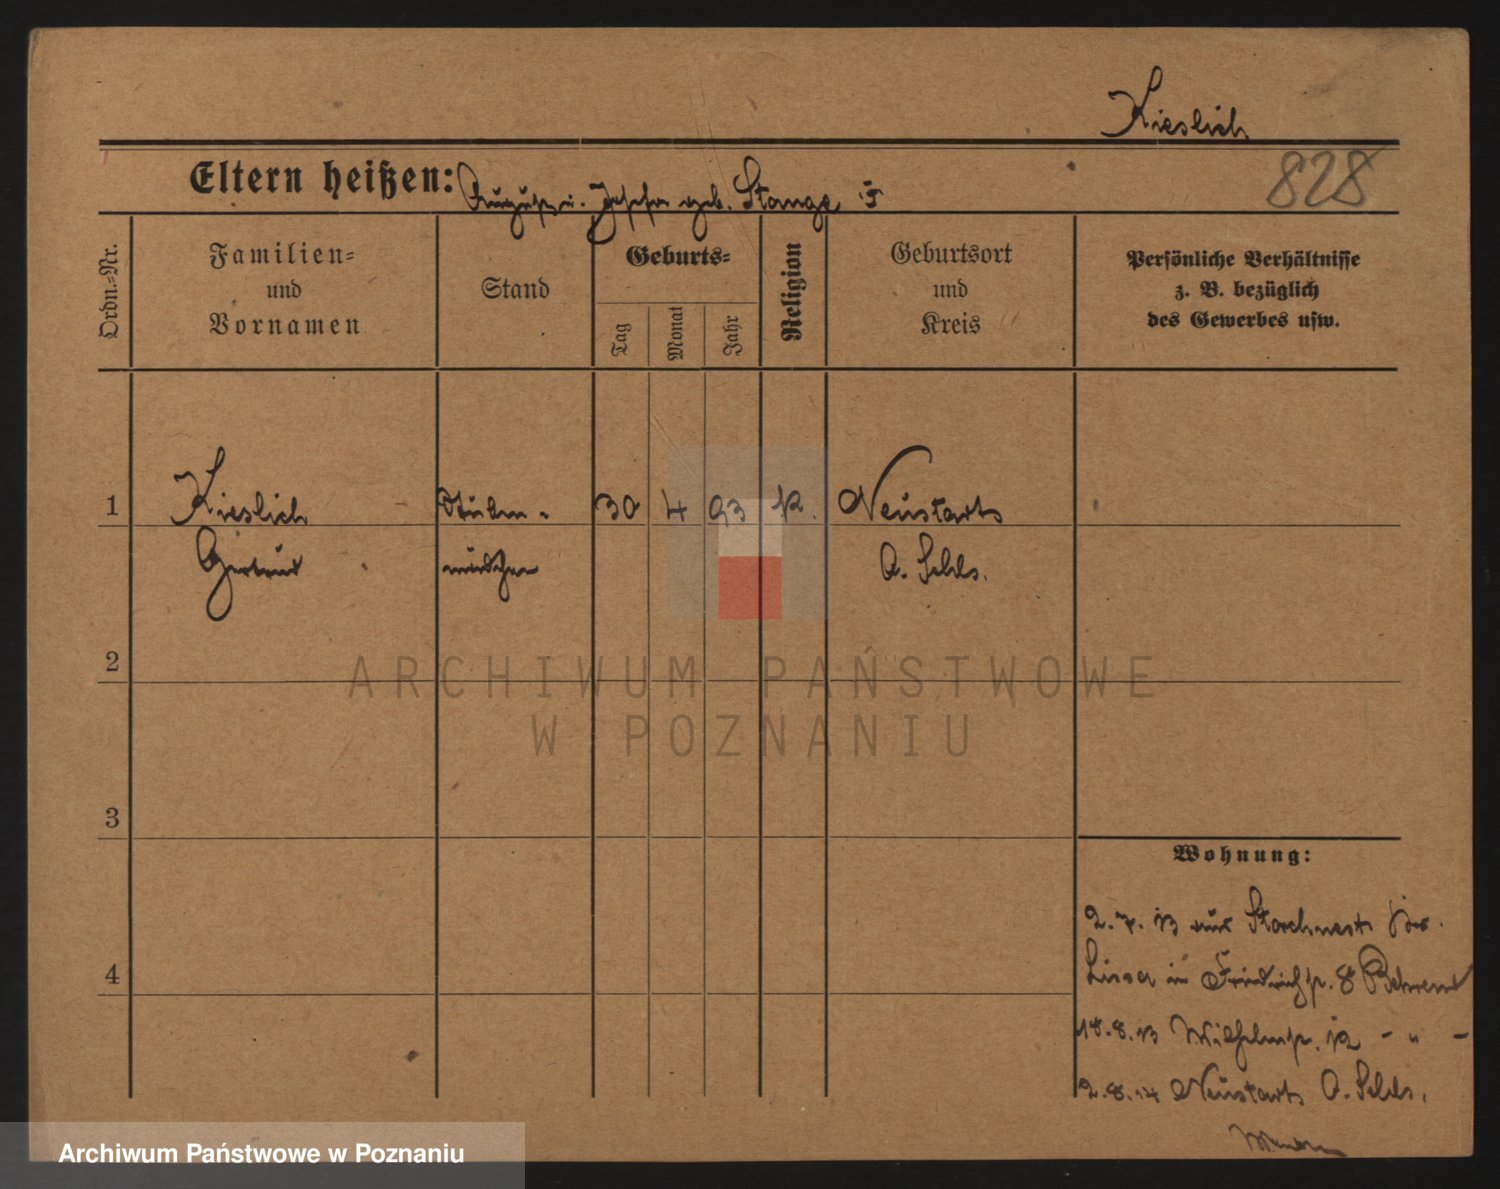 Kieslich
828
Eltern heißen: August u. Josefa geb. Stange
Ordn.-Nr.
Familien-
und
Vornamen
Stand
Geburts-
Tag
Monat
Jahr
Religion
Geburtsort
und
Kreis
Persönliche Verhältnisse
z. B. bezüglich
des Gewerbes usw.
1 Kieslich Stuben- 30 4 93 k. Neustadt
Gertrud mädchen O. Schls.
2
3
4
Wohnung:
2.7.13 aus Storchnest Kr.
Lissa in Friedrichstr. 8 Behrend
18.8.13 Wilhelmstr. 12 - " -
2.8.14 Neustadt O. Schls.
ARCHIWUM PAŃSTWOWE
W POZNANIU
Archiwum Państwowe w Poznaniu